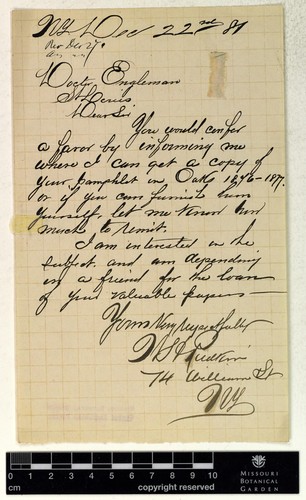 NY Dec 22nd 81
Rec Dec 27
Doctor Engleman
St Louis
Dear Sir
You would confer
a favor by informing me
where I can get a copy of
your pamphlet on Oaks 1876-1877.
or if you can furnish
yourself, let me know how
much to remit.
I am interested in the
subject. and am depending
on a friend for the loan
of your valuable papers
Yours Very respectfully
74 William St
NY
0 1 2 3 4 5 6 7 8 9 10
cm copyright reserved
MISSOURI
BOTANICAL
GARDEN